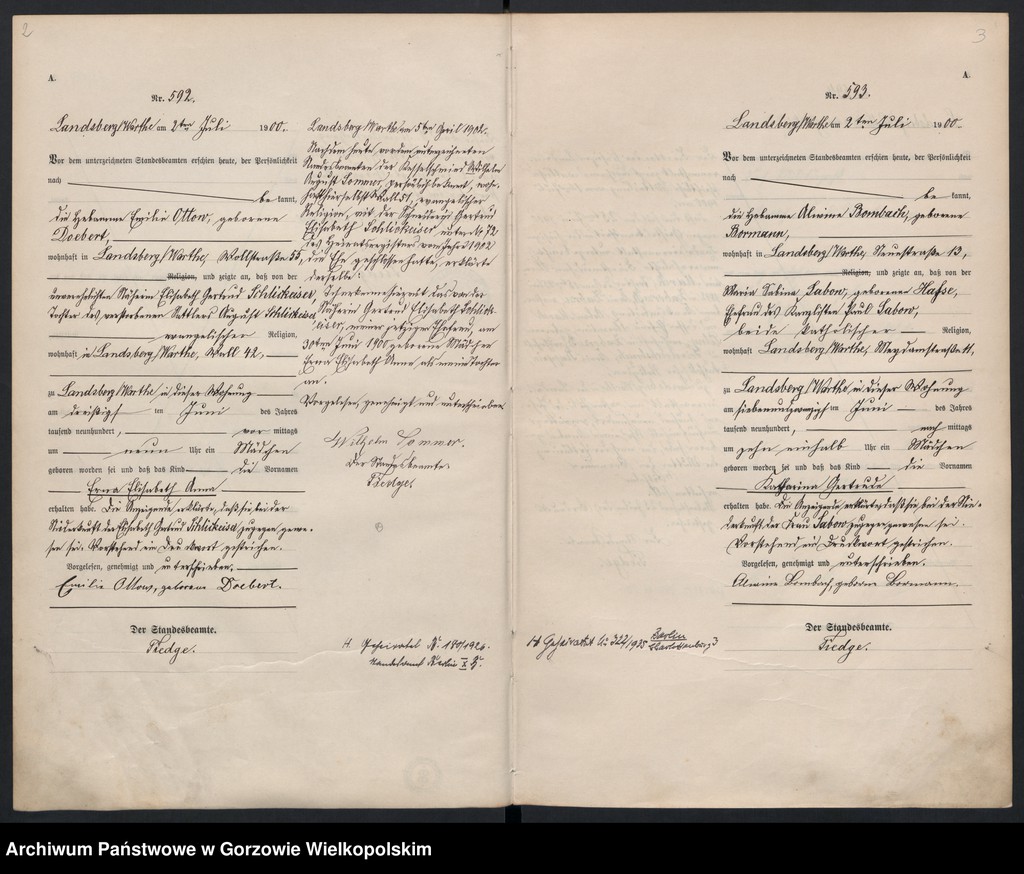 2
A.
Nr. 592.
Landsberg/Warthe am 2ten Juli 1900.
Vor dem unterzeichneten Standesbeamten erschien heute, der Persönlichkeit
nach
be kannt,
die Hebamme Emilie Ottow, geborene
Doebert,
wohnhaft in Landsberg/Warthe, Wollstraße 55,
Religion, und zeigte an, daß von der
unverehelichten Näherin Elisabeth Gertrud Schlickeiser,
Tochter des verstorbenen Sattlers August Schlickeiser
evangelischer Religion,
wohnhaft in Landsberg/Warthe, Wall 42,
zu Landsberg/Warthe in dieser Wohnung
am dreißigsten Juni des Jahres
tausend neunhundert, vor mittags
um neun Uhr ein Mädchen
geboren worden sei und daß das Kind die Vornamen
Erna Elisabeth Anna
erhalten habe. Die Anzeigende erklärte, daß sie bei der
Niederkunft der Elisabeth Gertrud Schlickeiser zugegen gewe-
sen sei. Vorstehend ein Druckwort gestrichen.
Vorgelesen, genehmigt und unterschrieben.
Emilie Ottow, geborene Doebert.
Der Standesbeamte.
Fiedge.
Landsberg/Warthe am 5ten April 1902.
Nachdem heute vor dem unterzeichneten
Standesbeamten der Kesselschmied Wilhelm
August Sommer, persönlich bekannt, wohn-
haft hierselbst Wall 51, evangelischer
Religion, mit der Schneiderin Gertrud
Elisabeth Schlickeiser unter Nr. 72
des Heiratsregisters vom Jahre 1902
die Ehe geschlossen hatte, erklärte
derselbe:
Ich erkenne hiermit das von der
Näherin Gertrud Elisabeth Schlick-
eiser, meiner jetzigen Ehefrau, am
30ten Juni 1900 geborene Mädchen
Erna Elisabeth Anna als meine Tochter
an.
Vorgelesen, genehmigt und unterschrieben
Wilhelm Sommer.
Der Standesbeamte.
Fiedge.
H. Geheiratet Nr. 180/1920.
Standesamt Berlin X
3
A.
Nr. 593.
Landsberg/Warthe am 2ten Juli 1900.
Vor dem unterzeichneten Standesbeamten erschien heute, der Persönlichkeit
nach
be kannt,
die Hebamme Alwine Bombach, geborene
Bormann,
wohnhaft in Landsberg/Warthe, Neustraße 13,
Religion, und zeigte an, daß von der
Maria Sabina Sabow, geborenen Hafse,
Ehefrau des Kanzlisten Paul Sabow,
beide katholischer Religion,
wohnhaft Landsberg/Warthe, Meydamstraße 11,
zu Landsberg/Warthe in dieser Wohnung
am siebenundzwanzigsten Juni des Jahres
tausend neunhundert, nach mittags
um zehn einhalb Uhr ein Mädchen
geboren worden sei und daß das Kind die Vornamen
Katharina Gertrude
erhalten habe. Die Anzeigende erklärte, daß sie bei der Nie-
derkunft der Frau Sabow zugegen gewesen sei.
Vorstehend ein Druckwort gestrichen.
Vorgelesen, genehmigt und unterschrieben.
Alwine Bombach, geborene Bormann.
Der Standesbeamte.
Fiedge.
H Geheiratet Nr. 322/1935 Berlin
Charlottenburg 3
Archiwum Państwowe w Gorzowie Wielkopolskim